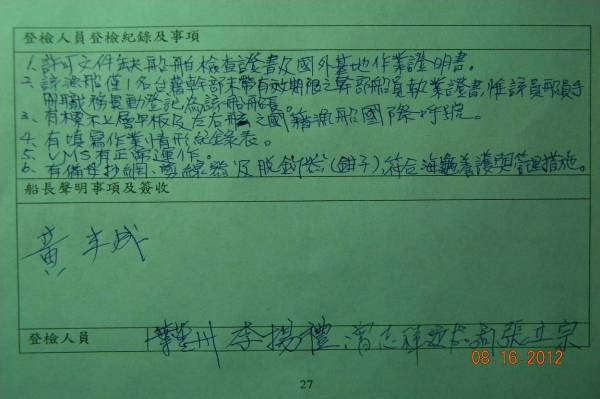 登檢人員登檢紀錄及事項
1. 許可文件缺船舶檢查證書及國外基地作業證明書。
2. 該漁船僅1名台籍幹部未帶有效期限之幹部船員執業證書,惟該員船員手
冊職務異動登記為該船船長。
3. 有標示上層甲板及左右舷之國籍漁船國際呼號。
4. 有填寫作業情形紀錄表。
5. VMS有正常運作。
6. 有備妥抄網、剪線器及脫鉤器(鉗子)符合海龜養護與管理措施。
船長聲明事項及簽收
黃
登檢人員
李揚禮 張立宗
08.16.2012
27